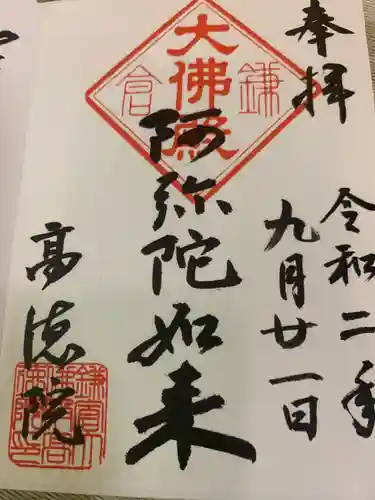 奉拝
令和二年
九月廿一日
大佛殿
鎌倉
阿弥陀如来
高徳院